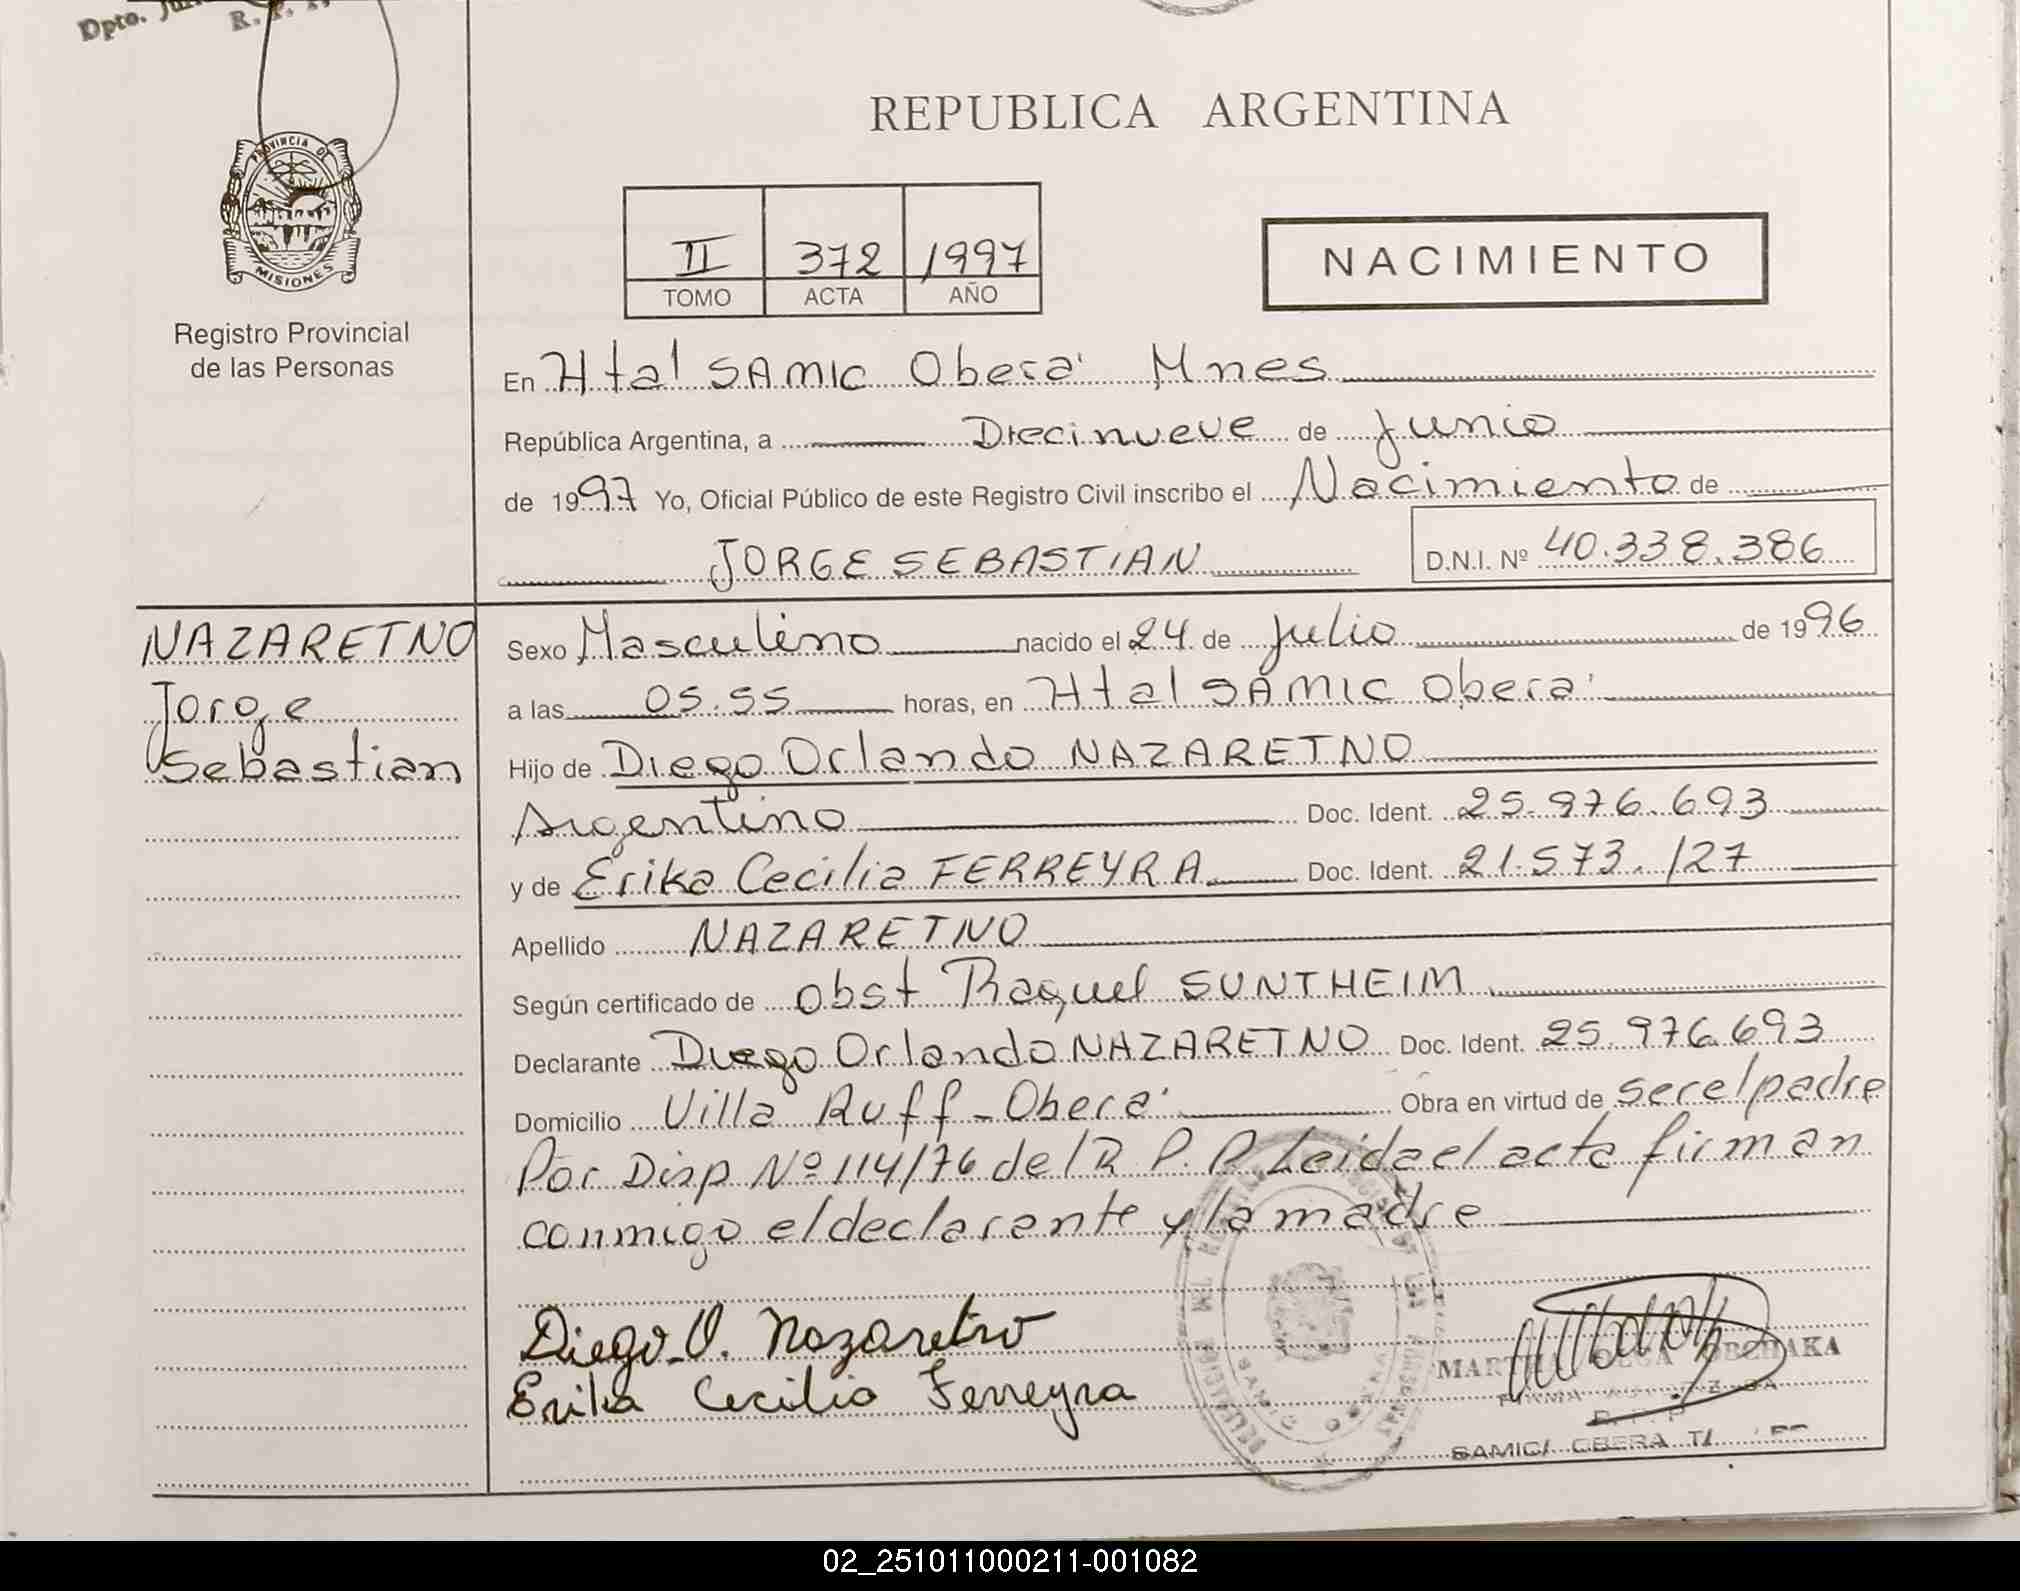 Dpto.
R. P. P.
REPUBLICA ARGENTINA
PROVINCIA DE
MISIONES
Registro Provincial
de las Personas
II 372 1997
TOMO ACTA AÑO
NACIMIENTO
En Htal SAMIC Oberá Mnes
República Argentina, a Diecinueve de Junio
de 1997 Yo, Oficial Público de este Registro Civil inscribo el Nacimiento de
JORGE SEBASTIAN D.N.I. Nº 40.338.386
NAZARETNO
Jorge
Sebastian
Sexo Masculino nacido el 24 de Julio de 1996
a las 05.55 horas, en Htal SAMIC Oberá
Hijo de Diego Orlando NAZARETNO
Argentino Doc. Ident. 25.976.693
y de Erika Cecilia FERREYRA Doc. Ident. 21.573.127
Apellido NAZARETNO
Según certificado de obst Raquel SUNTHEIM
Declarante Diego Orlando NAZARETNO Doc. Ident. 25.976.693
Domicilio Villa Ruff - Oberá Obra en virtud de ser el padre
Por Disp Nº 114/76 del R.P.P. Leida el acta firman
conmigo el declarante y la madre
Diego O. Nazaretno
Erika Cecilia Ferreyra
SAMIC OBERA
02_251011000211-001082